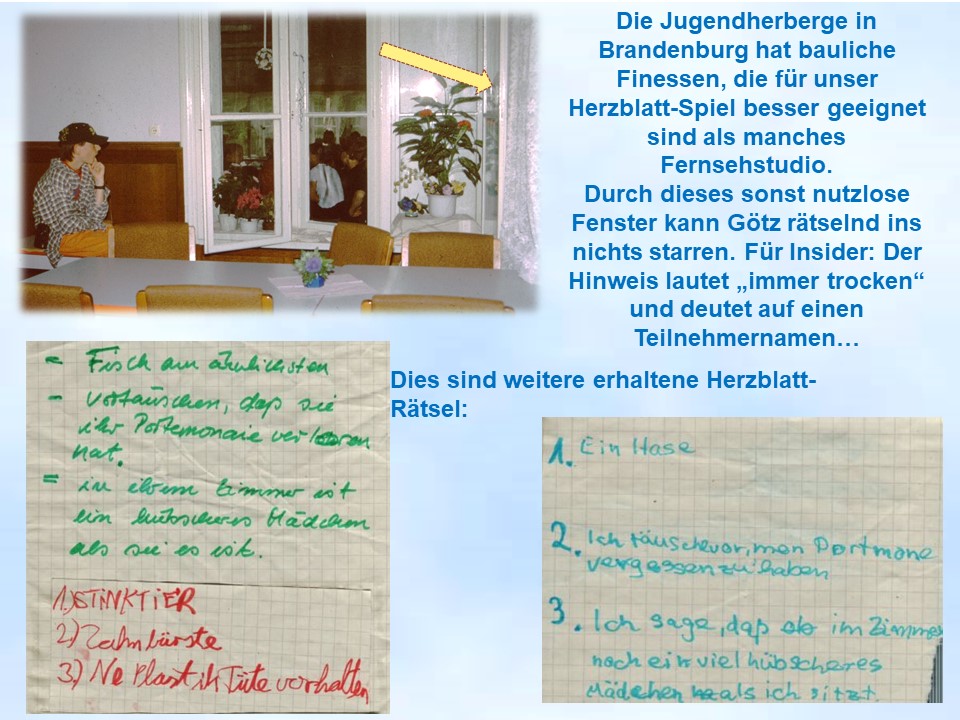 Die Jugendherberge in
Brandenburg hat bauliche
Finessen, die für unser
Herzblatt-Spiel besser geeignet
sind als manches
Fernsehstudio.
Durch dieses sonst nutzlose
Fenster kann Götz rätselnd ins
nichts starren. Für Insider: Der
Hinweis lautet „immer trocken“
und deutet auf einen
Teilnehmernamen…
Dies sind weitere erhaltene Herzblatt-
Rätsel:
= Fisch am ähnlichsten
- vortäuschen, daß sie
ihr Portemonaie verloren
hat.
= in ihrem Zimmer ist
ein hübscheres Mädchen
als sie es ist.
1.) STINKTIER
2.) Zahnbürste
3.) Ne Plastik Tüte vorhalten
1. Ein Hase
2. Ich täusche vor, mein Portmone
vergessen zu haben
3. Ich sage, daß im Zimmer
noch ein viel hübscheres
Mädchen als ich sitzt.